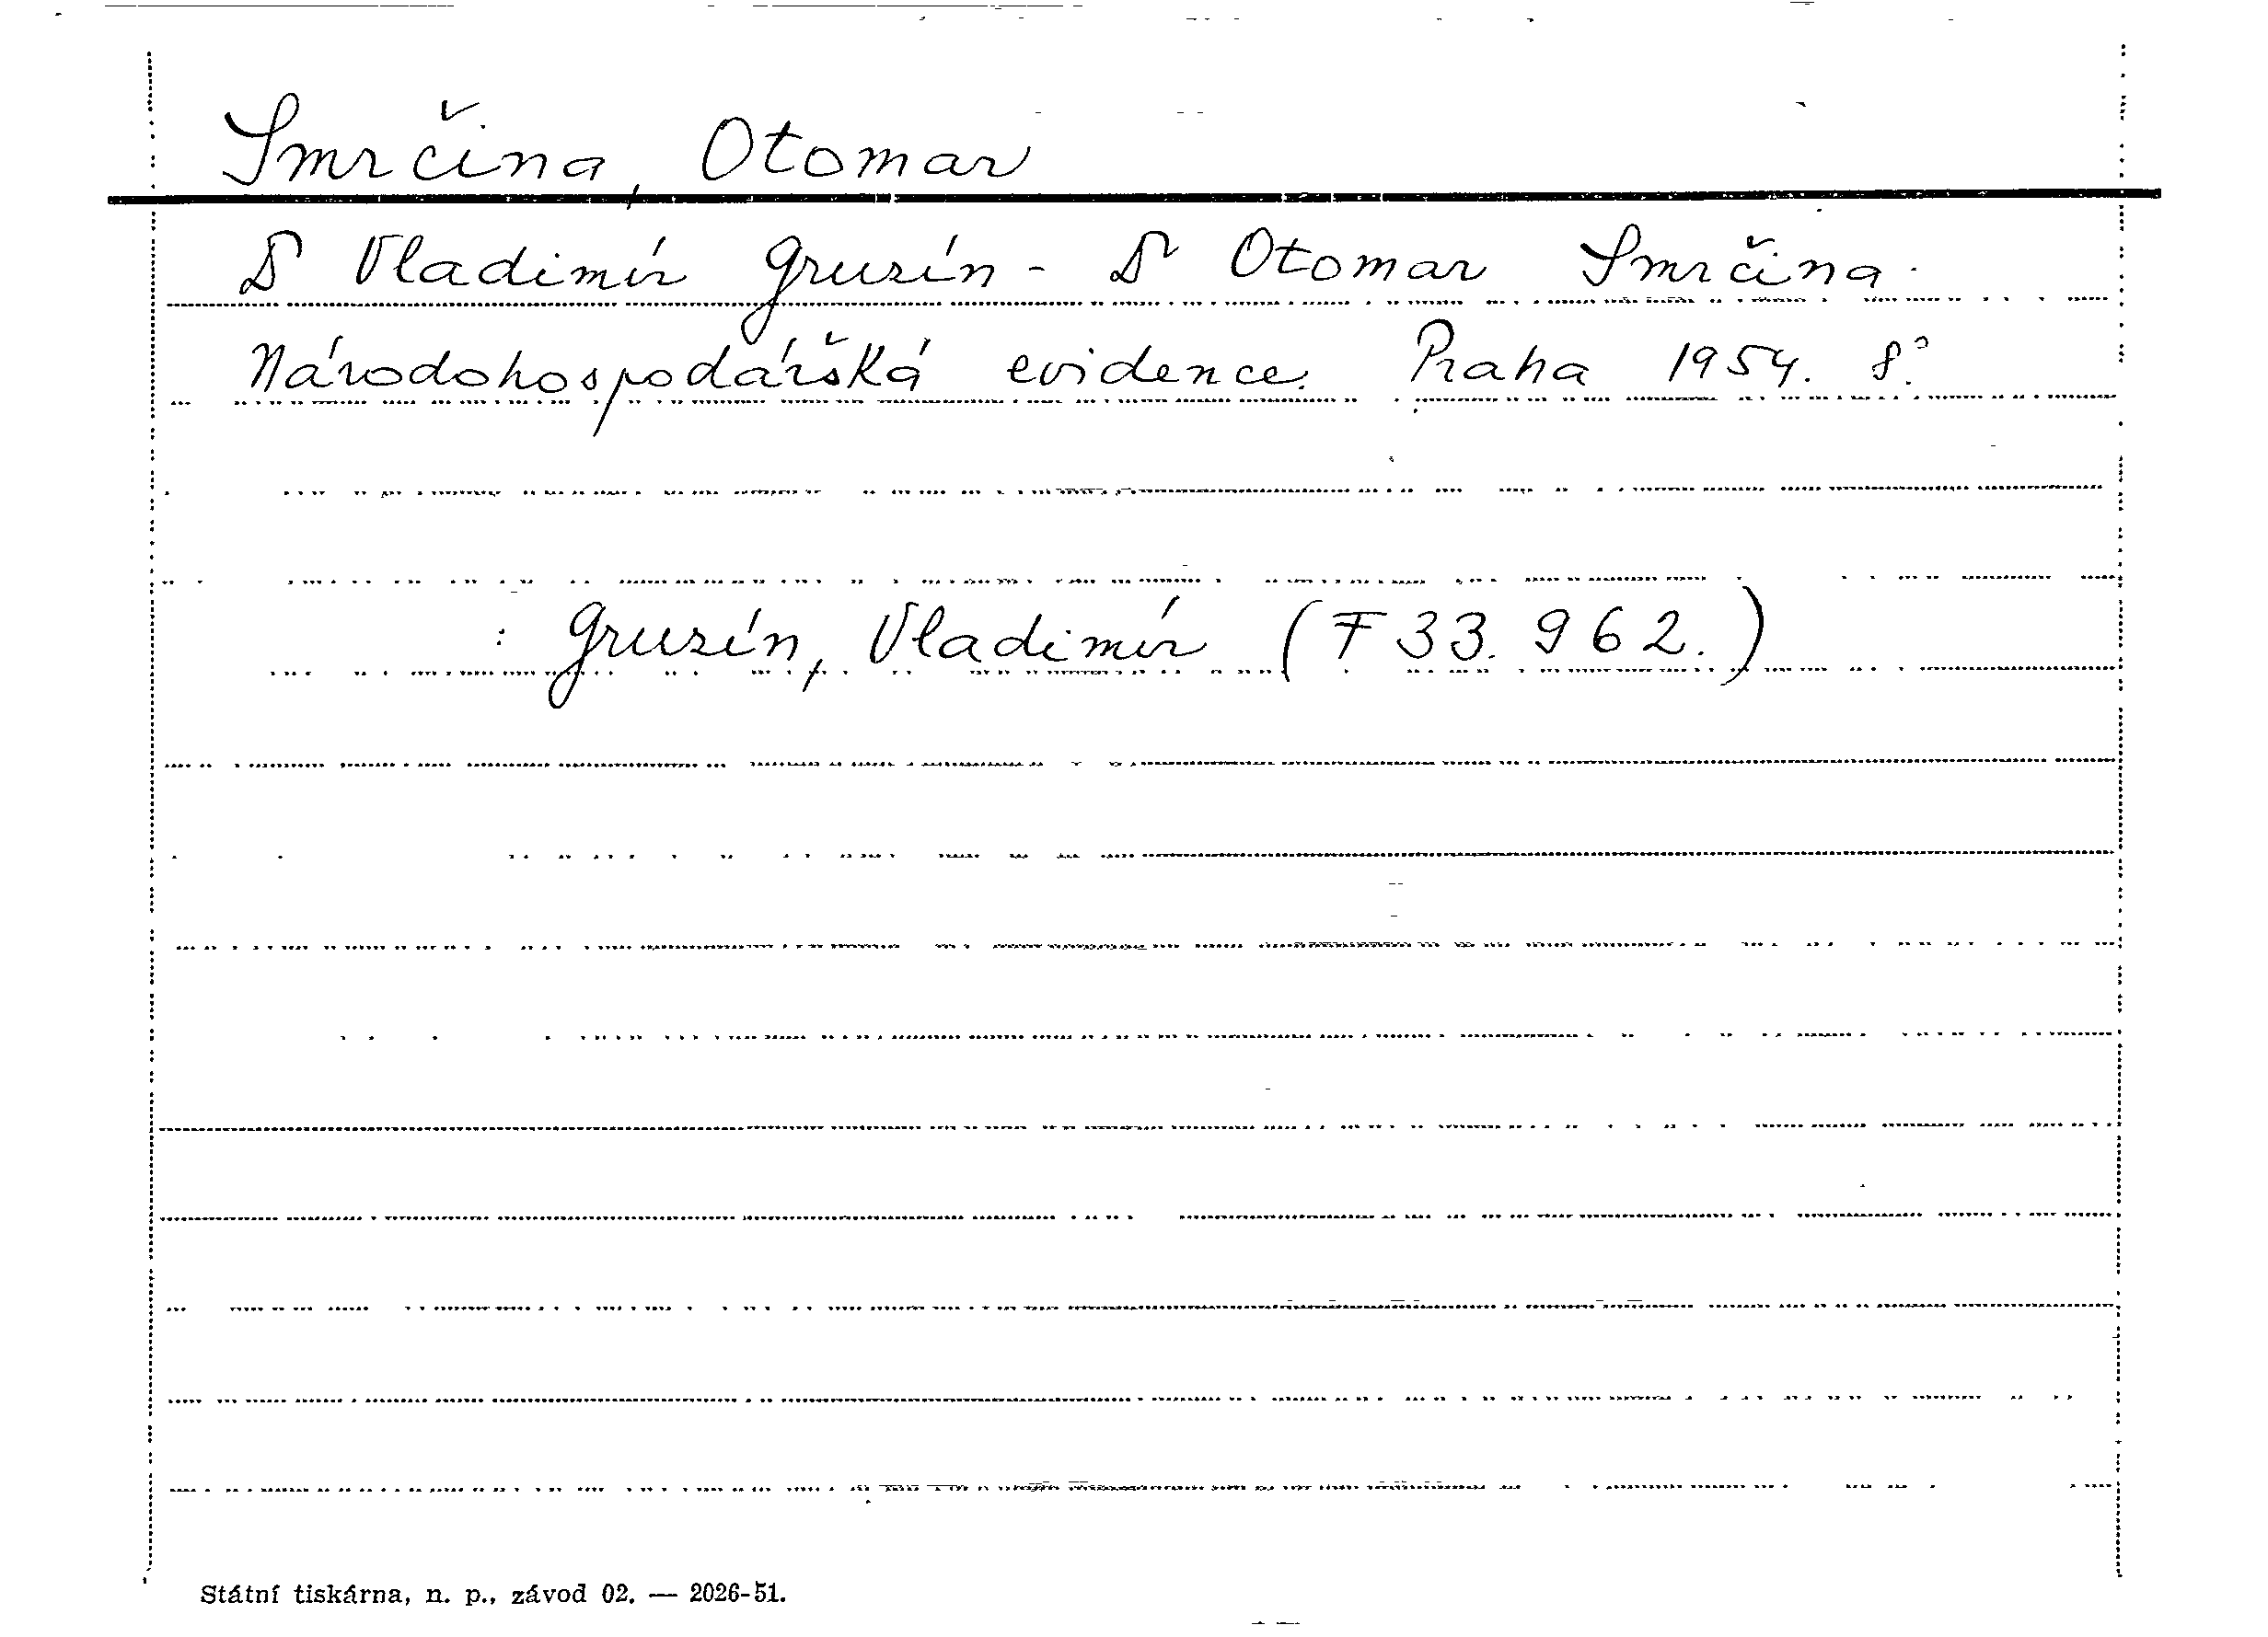 Smrčina, Otomar
Dr Vladimír Gruzín - Dr Otomar Smrčina.
Národohospodářská evidence. Praha 1954. 8°.
: Gruzín, Vladimír (F 33.962.)
Státní tiskárna, n. p., závod 02. — 2026-51.